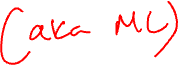 (aka ML)